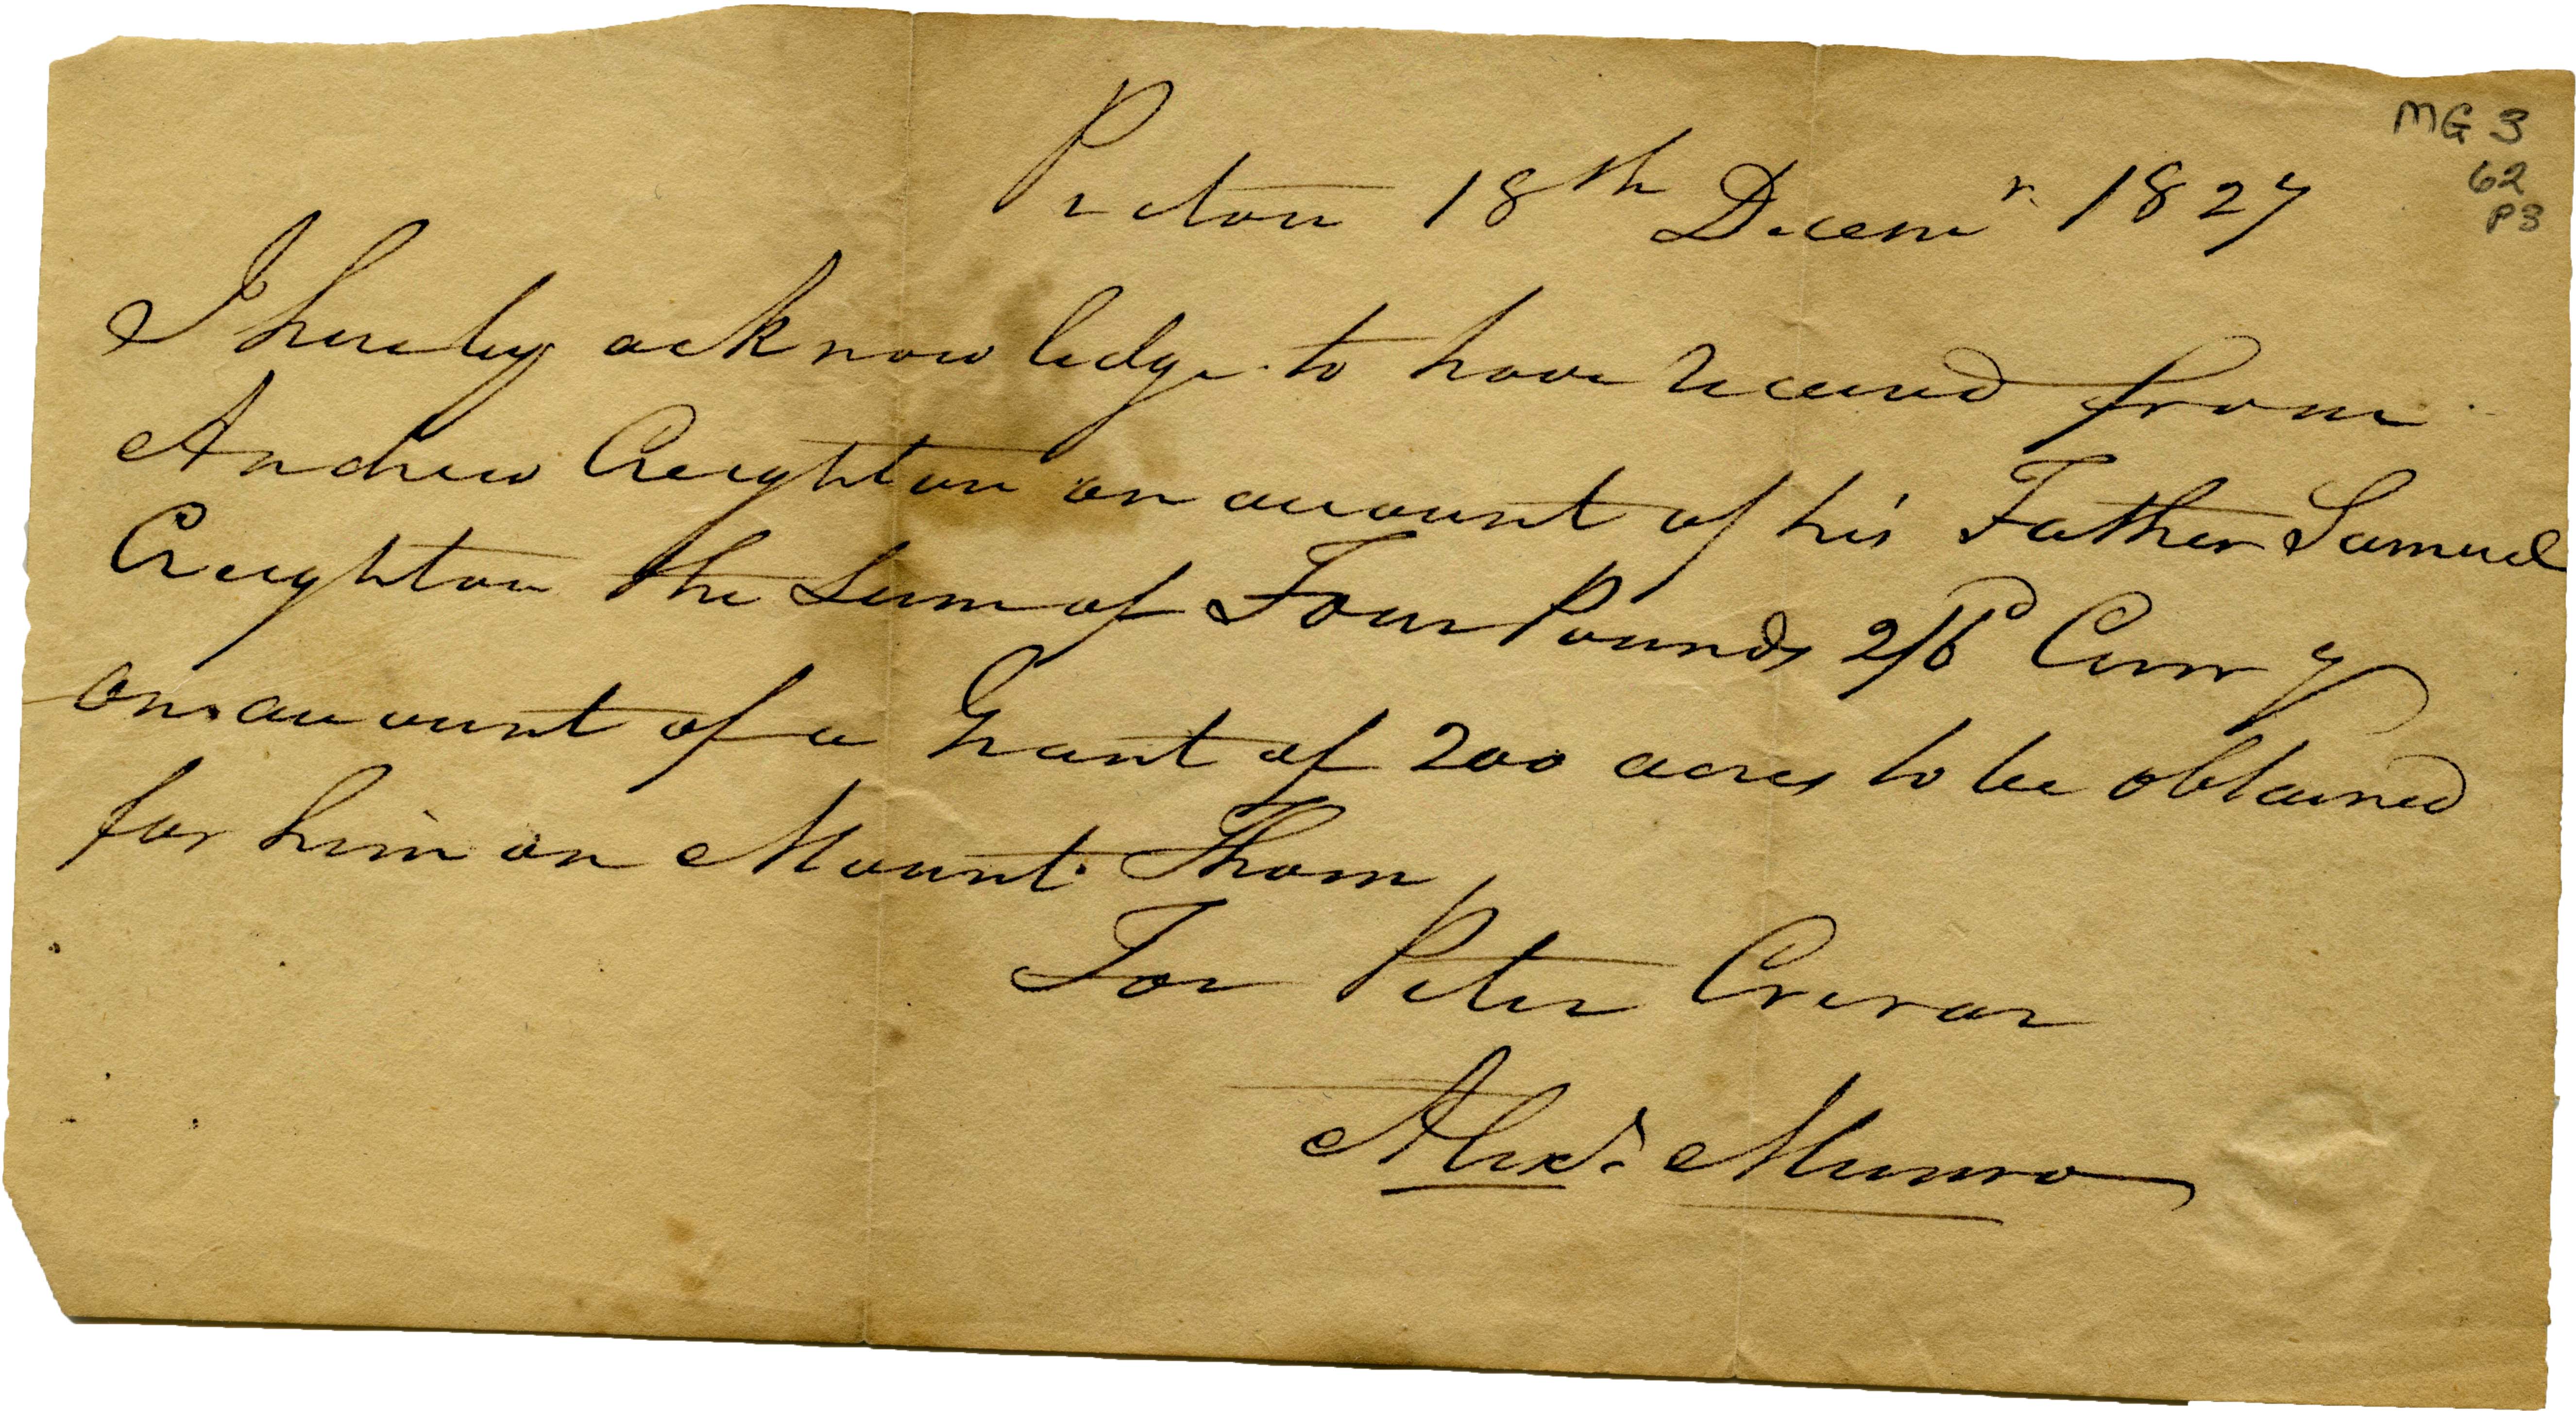 MG 3
62
P3
Pictou 18th Decemr 1827
I hereby acknowledge to have received from
Andrew Creighton on account of his Father Samuel
Creighton the Sum of Four Pounds 2/6 Curry
on account of a Grant of 200 acres to be obtained
for him on Mount Thom
For Peter Crerar
Alexr Munro